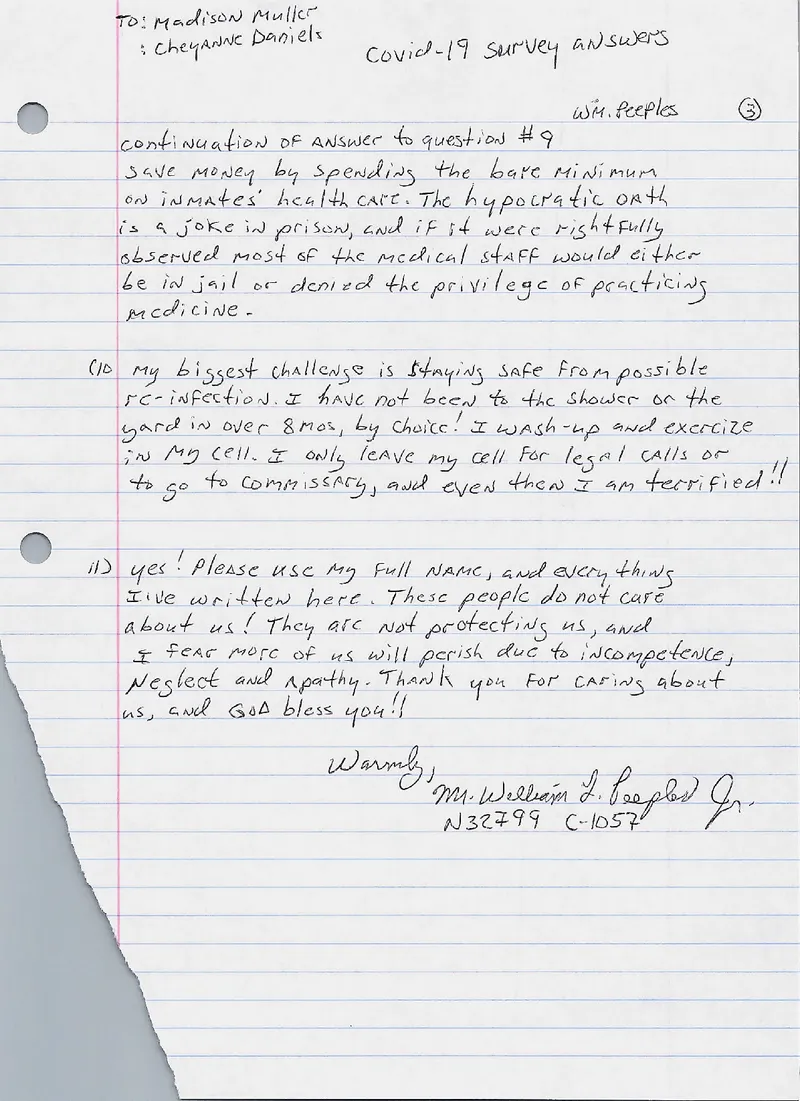 TO: Madison Muller
: Cheyanne Daniels
Covid-19 survey answers
WM. Peeples ③
continuation of answer to question #9
save money by spending the bare minimum
on inmates' health care. The hypocratic oath
is a joke in prison, and if it were rightfully
observed most of the medical staff would either
be in jail or denied the privilege of practicing
medicine.
(10 My biggest challenge is staying safe from possible
re-infection. I have not been to the shower or the
yard in over 8 mos, by choice! I wash-up and exercize
in my cell. I only leave my cell for legal calls or
to go to commissary, and even then I am terrified!!
11) yes! Please use my full name, and every thing
I've written here. These people do not care
about us! They are not protecting us, and
I fear more of us will perish due to incompetence,
neglect and apathy. Thank you for caring about
us, and God bless you!!
Warmly,
Mr. William L. Peeples Jr.
N32799 C-1057